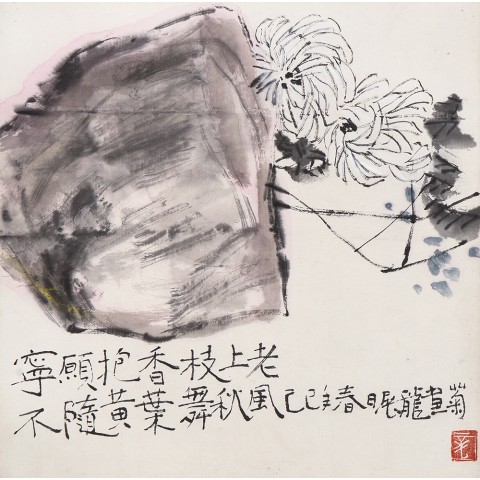 寧願抱香枝上老
不隨黃葉舞秋風己巳年春眠龍畫菊